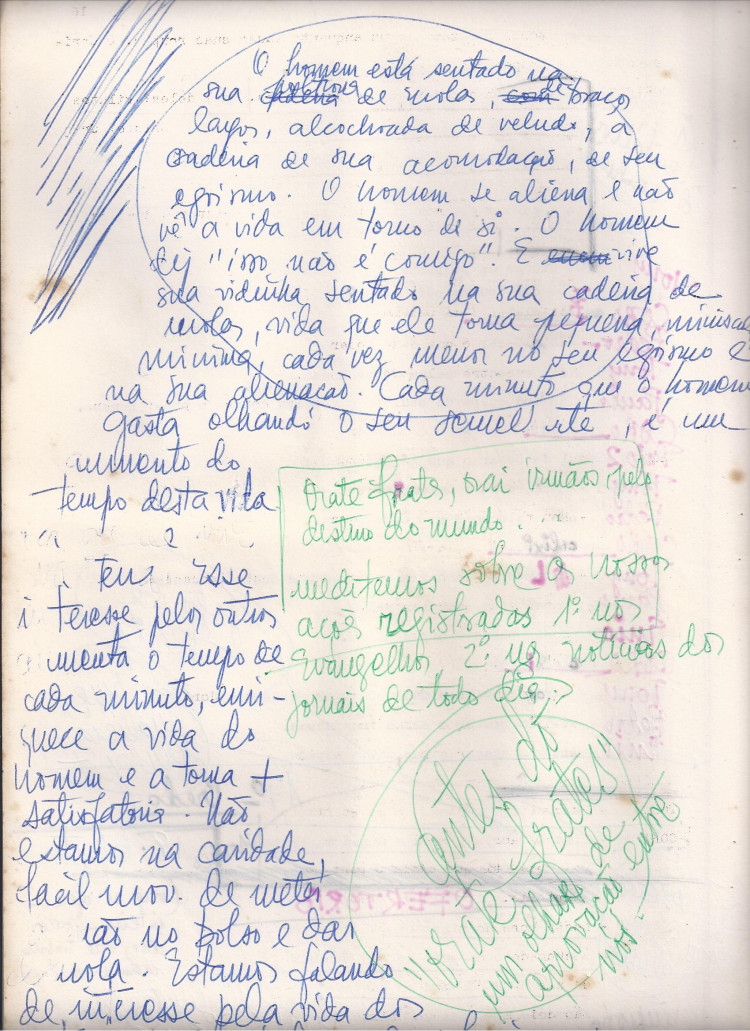 O homem está sentado na
sua poltrona de molas, de braços
largos, alcochoada de veludo, a
cadeira de sua acomodação, de seu
egoismo. O homem se aliena e não
vê a vida em torno de si. O homem
diz "isso não é comigo". E vive
sua vidinha sentado na sua cadeira de
molas, vida que ele torna pequena, minuscul
minima, cada vez menor no seu egoismo e
na sua alienação. Cada minuto que o homem
gasta olhando o seu semel nte, é um
aumento do
tempo desta vida
Ter esse
i teresse pelos outros
menta o tempo de
cada minuto, enri-
quece a vida do
homem e a torna +
satisfatoria. Não
estamos na caridade,
facil mov. de meter
mão no bolso e dar
mola. Estamos falando
de interesse pela vida dos
Orate frates, orai irmãos pelo
destino do mundo.
meditemos sobre a nossas
ações registradas 1º nos
Evangelhos 2º nas noticias dos
jornais de todo dia,
antes do
"orate frates"
um olhar de
aprovação entre
nós.
OFERTORIO